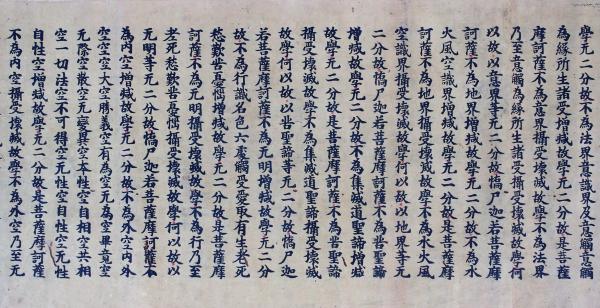 學无二分故不為法界意識界及意觸意觸
為緣所生諸受增減故學无二分故是菩薩
摩訶薩不為意界攝受壞減故學不為法界
乃至意觸為緣所生諸受攝受壞減故學何
以故以意界等无二分故憍尸迦若菩薩摩
訶薩不為地界增減故學无二分故不為水
火風空識界增減故學无二分故是菩薩摩
訶薩不為地界攝受壞減故學不為水火風
空識界攝受壞減故學何以故以地界等无
二分故憍尸迦若菩薩摩訶薩不為苦聖諦
增減故學无二分故不為集滅道聖諦增減
故學无二分故是菩薩摩訶薩不為苦聖諦
攝受壞減故學不為集滅道聖諦攝受壞減
故學何以故以苦聖諦等无二分故憍尸迦
若菩薩摩訶薩不為无明增減故學无二分
故不為行識名色六處觸受愛取有生老死
愁歎苦憂惱增減故學无二分故是菩薩摩
訶薩不為无明攝受壞減故學不為行乃至
老死愁歎苦憂惱攝受壞減故學何以故以
无明等无二分故憍尸迦若菩薩摩訶薩不
為內空增減故學无二分故不為外空內外
空空空大空勝義空有為空无為空畢竟空
无際空散空无變異空本性空自相空共相
空一切法空不可得空无性空自性空无性
自性空增減故學无二分故是菩薩摩訶薩
不為內空攝受壞減故學不為外空乃至无